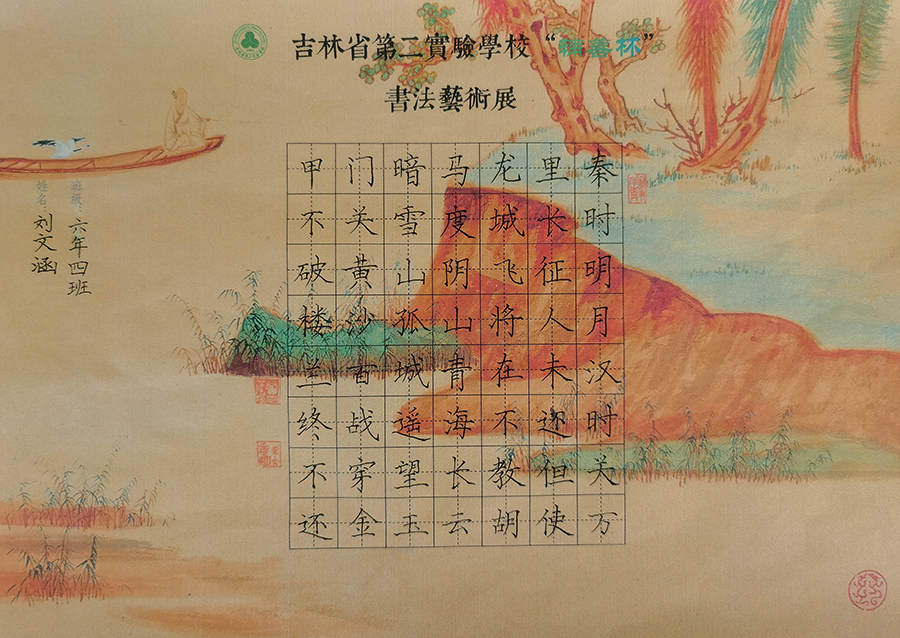 吉林省第二實驗學校“福喜杯”
書法藝術展
秦时明月汉时关万
里长征人未还但使
龙城飞将在不教胡
马度阴山青海长云
暗雪山孤城遥望玉
门关黄沙百战穿金
甲不破楼兰终不还
班級：六年四班
姓名：刘文涵